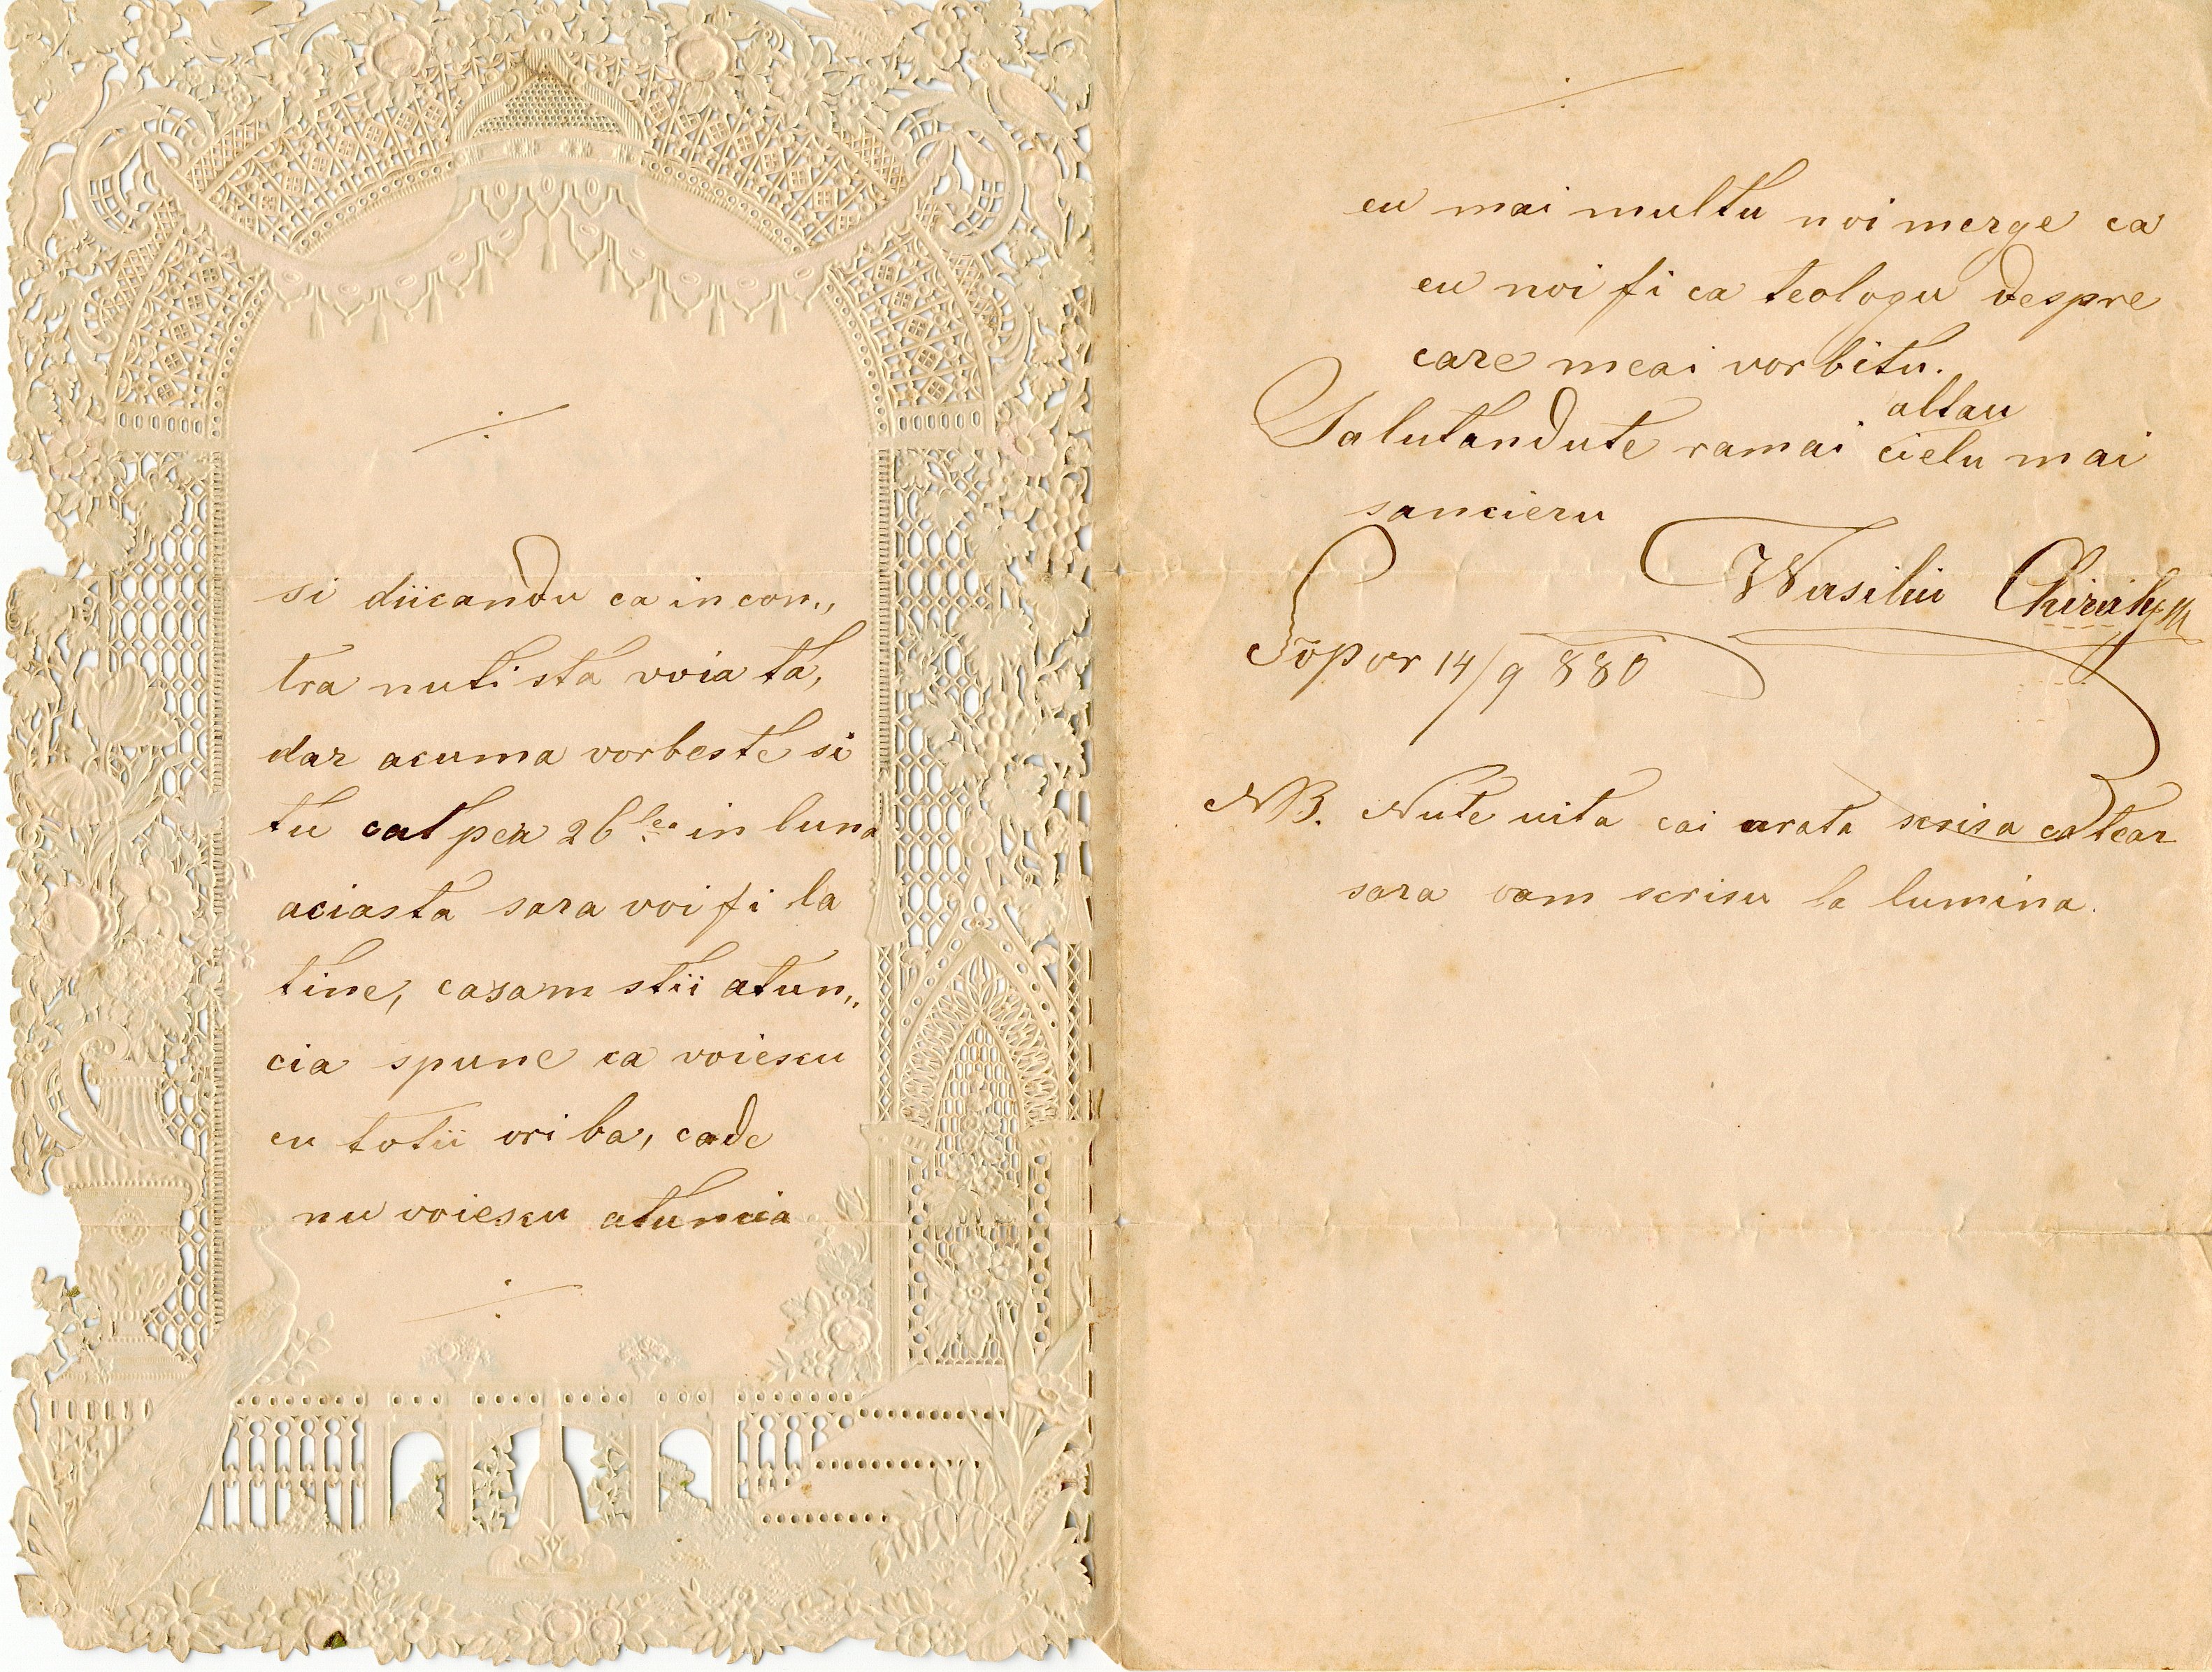 si diicandu ca in con„
tra nuti sta voia ta,
dar acuma vorbeste si
tu cat pea 26 lea in luna
aciasta sara voi fi la
tine, casam stii atun„
cia spune ca voiescu
cu totii ori ba, cade
nu voiescu atuncia
eu mai multu noi merge ca
eu noi fi ca teologu despre
care meai vorbitu.
altau
Salutandute ramai cielu mai
sancieru
Wasiliu
Sopor 14/9 880
NB. Nute uita cai arata scrisa
sara vam scrisu la lumina.